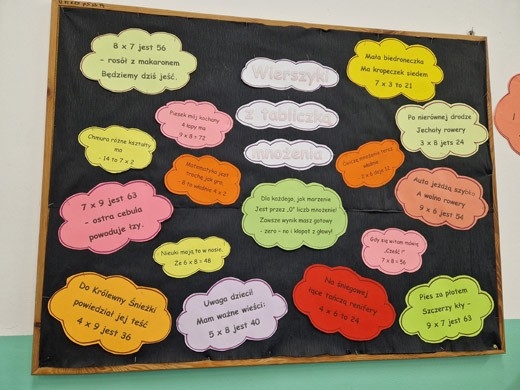 Wierszyki
z tabliczką
mnożenia
8 x 7 jest 56
- rosół z makaronem
Będziemy dziś jeść.
Mała biedroneczka
Ma kropeczek siedem
7 x 3 to 21
Piesek mój kochany
4 łapy ma
9 x 8 = 72
Po nierównej drodze
Jechały rowery
3 x 8 jets 24
Chmura różne kształty
ma
- 14 to 7 x 2
Matematyka jest
trochę jak gra,
- 8 to właśnie 4 x 2
Ćwiczę mnożenie
właśnie
7 x 9 jest 63
- ostra cebula
powoduje łzy.
Dla każdego, jak marzenie
Jest przez „0" liczb mnożenie!
Zawsze wynik masz gotowy
- zero - no i kłopot z głowy!
Auta jeżdżą szybko
A wolno rowery
9 x 6 jest 54
Nauki mają to w nosie,
Że 6 x 8 = 48
Gdy się witam mówię
„Cześć!"
7 x 8 = 56
Do Królewny Śnieżki
powiedział jej teść
4 x 9 jest 36
Uwaga dzieci!
Mam ważne wieści:
5 x 8 jest 40
Na śniegowej
łące tańczą renifery
4 x 6 to 24
Pies za płotem
Szczerzy kły -
9 x 7 jest 63